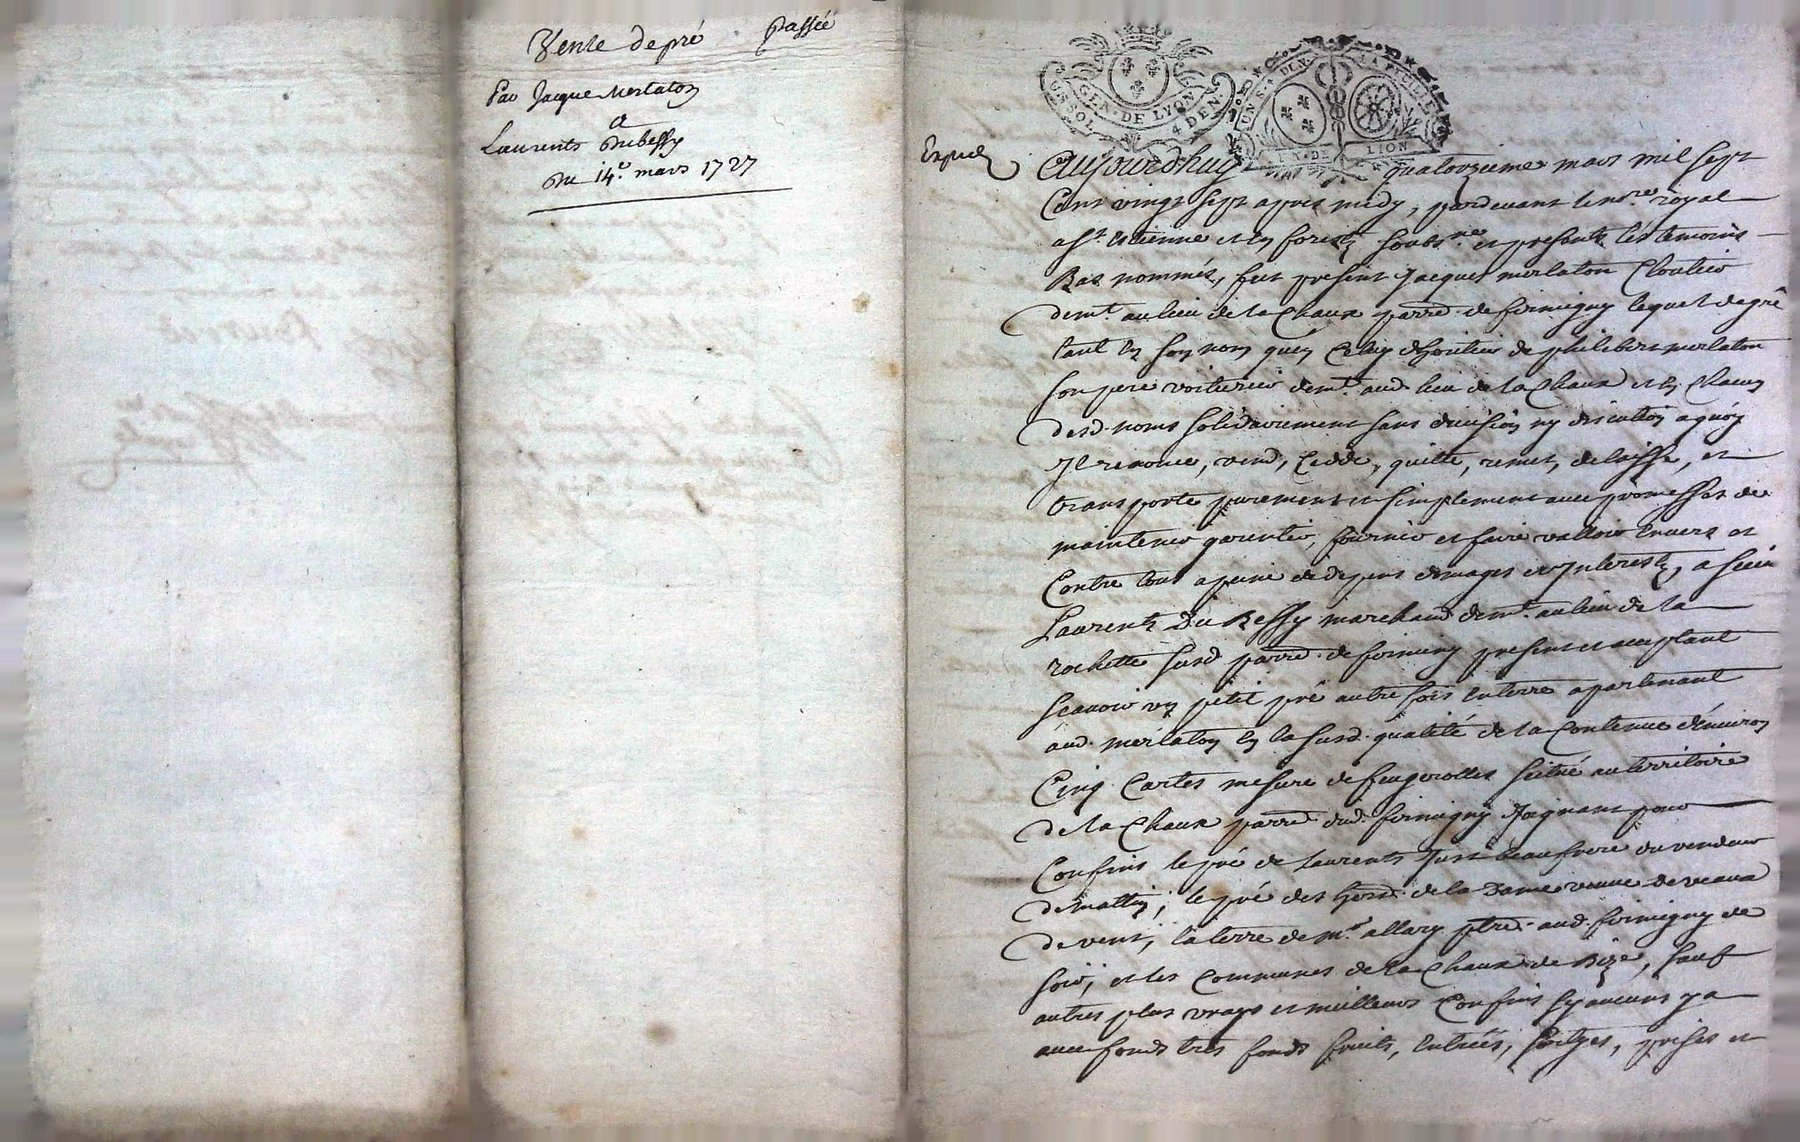 Vente de pré passée
Par Jacque Merlaton
a
Laurents Dubessy
Du 14e mars 1727
UN SOL
GEN. DE LYON
4 DEN.
LION
Aujourdhuy quatorzieme mars mil sept
Cent vingt sept apres midy, pardevant le nore royal
a St Estienne et en forestz soubsne et presents les temoins
Bas nommés, fut present Jacques merlaton Cloutier
demt au lieu de la Chaux parre de firmigny lequel de gré
tant en son nom quen Celuy de philibert merlaton
son pere voiturier demt aud lieu de la Chaux et en Chacun
desd noms solidairement sans division ny discution a quoy
Il renonce, vend, Cedde, quitte, remet, delaisse, et
transporte purement et simplement avec promesses de
maintenir garentir, fournir et faire valloir Envers et
Contre tous a peine de depens domages et Interestz, a sieur
Laurentz Du Bessy marchand demt au lieu de la
rochette susd parre de firminy present et acceptant
scavoir un petit pré autre fois En terre apartenant
aud merlaton en la susd qualité de la Contenue d'environ
Cinq Cartes mesure de feugerolles scitué au territoire
de la Chaux parre dud firmigny Joignant pour
Confins le pré de Laurents Just beaufrere du vendeur
de mattin; le pré des hers de la Dame veuve de veaux
de vent; la terre de mre allary ptre aud firmigny de
soir; et les Communes de la Chaux de Bize, sauf
autres plus vrays et meilleurs Confins sy aucuns y a
avec fonds tres fonds fruits, Entrées, sorties, prises et